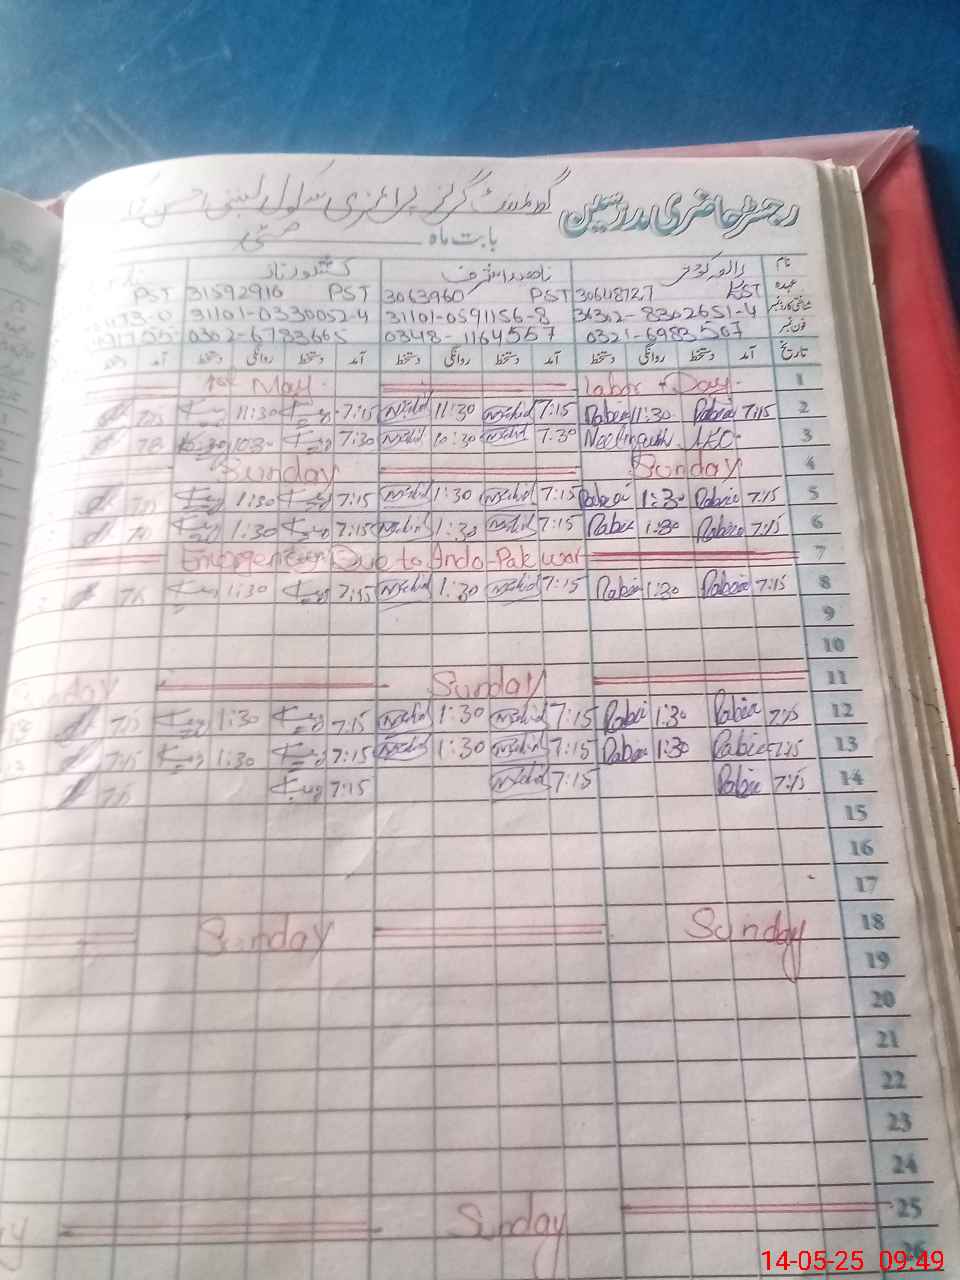 رجسٹر حاضری مدرسین گورنمنٹ گرلز پرائمری سکول بستی
بابت ماہ مئی
نام رابعہ کوثر ناہید اشرف کشور ناز
عہدہ PST 30648727 PST 3063960 PST 31592916 PST
شناختی کارڈ نمبر 36302-8302651-4 31101-0591156-8 31101-0330052-4
فون نمبر 0321-6983507 0348-1164557 0302-6783665
تاریخ آمد دستخط روانگی دستخط آمد دستخط روانگی دستخط آمد دستخط روانگی دستخط آمد دستخط
1 Labor Day. 1st May.
2 7:15 Rabia 11:30 Rabia 7:15 Nahid 11:30 Nahid 7:15 11:30
3 Meeting with AEO. 7:30 Nahid 10:30 Nahid 7:30
4 Sunday Sunday
5 7:15 Rabia 1:30 Rabia 7:15 Nahid 1:30 Nahid 7:15 1:30
6 7:15 Rabia 1:30 Rabia 7:15 Nahid 1:30 Nahid 7:15 1:30
7 Emergency Due to Indo-Pak war
8 7:15 Rabia 1:30 Rabia 7:15 Nahid 1:30 Nahid 7:15 1:30
9
10
11 Sunday Sunday
12 7:15 Rabia 1:30 Rabia 7:15 Nahid 1:30 Nahid 7:15 1:30 7:15
13 7:15 Rabia 1:30 Rabia 7:15 Nahid 1:30 Nahid 7:15 1:30 7:15
14 7:15 Rabia 7:15 Nahid 7:15
15
16
17
18 Sunday Sunday
19
20
21
22
23
24
25 Sunday
26
14-05-25 09:49